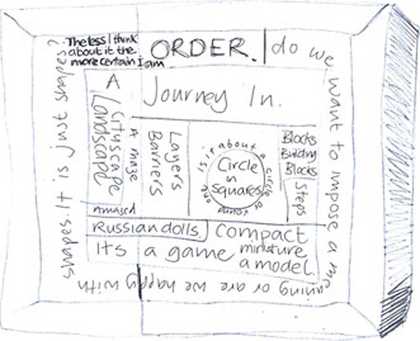 The less I think
about it the
more certain I am
ORDER.
do we want to impose a meaning or are we happy with shapes. It is just shapes?
A
Cityscape
Landscape
A maze
Amazed
Journey In.
Layers
Barriers
Circle
in
squares
is it about a circle or
one
Blocks
Building
Blocks
Steps
Russian dolls.
Compact
miniature
a model.
Its a game